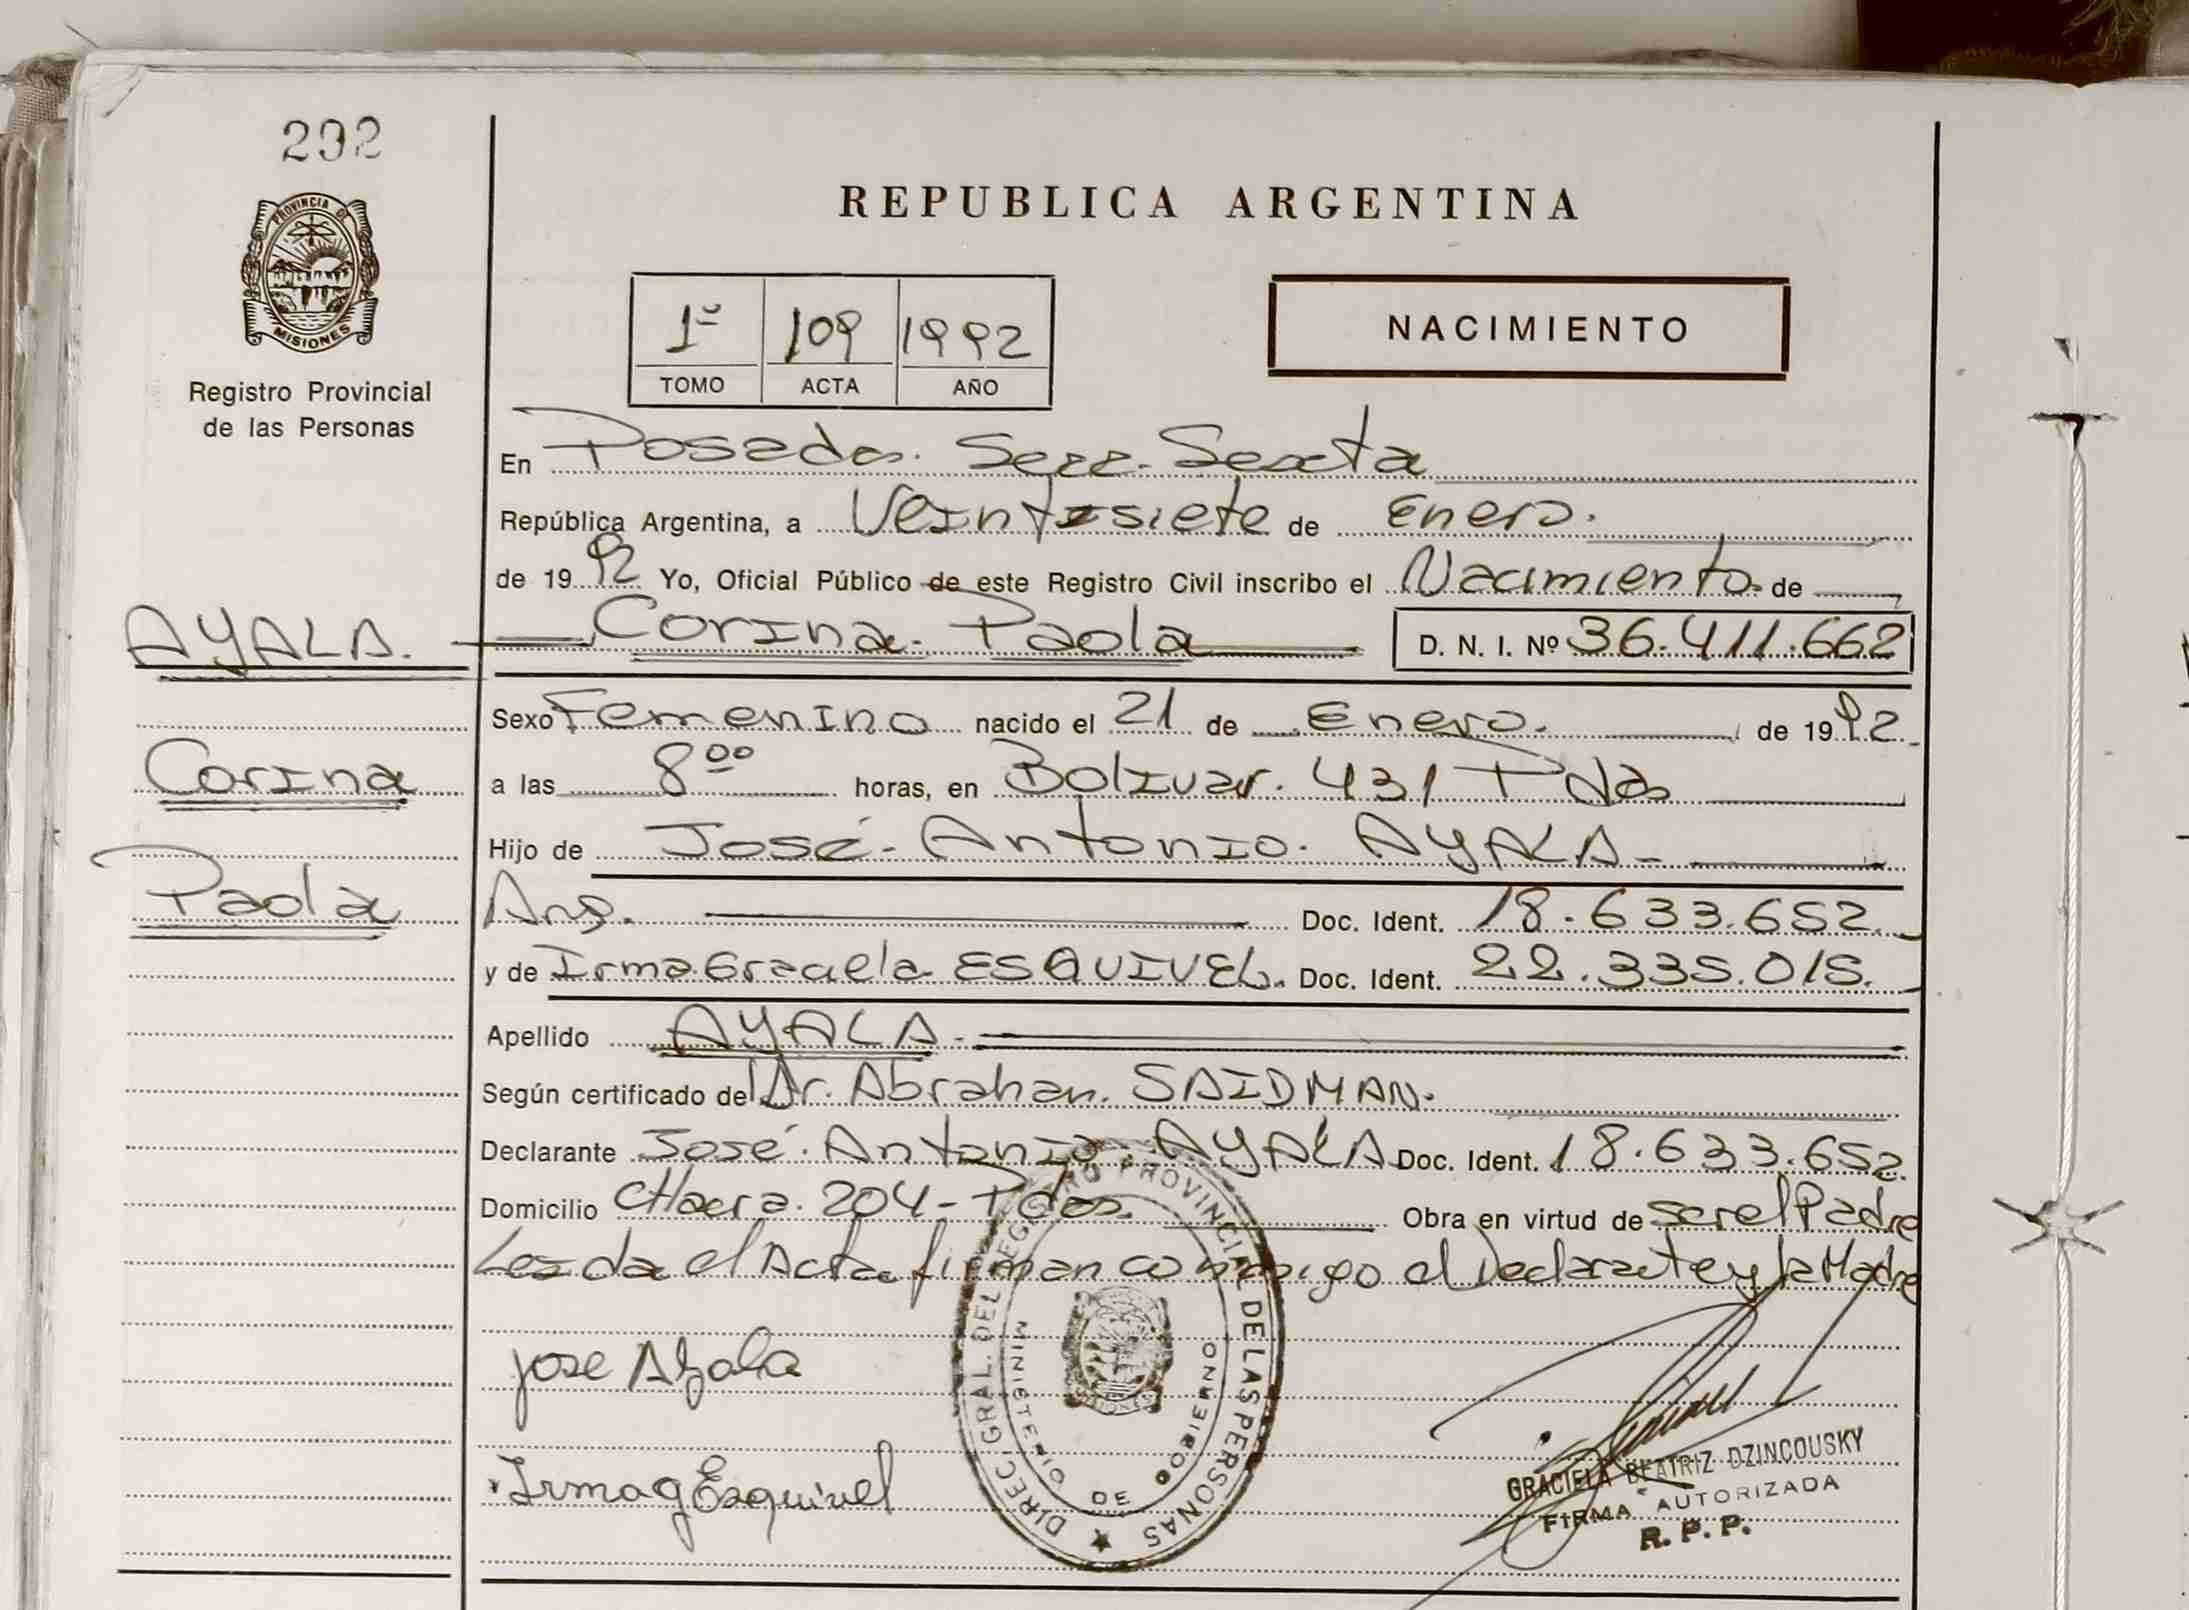 292
PROVINCIA DE
MISIONES
Registro Provincial
de las Personas
REPUBLICA ARGENTINA
1º 109 1992
TOMO ACTA AÑO
NACIMIENTO
En Posadas. Secc. Sexta
República Argentina, a Veintisiete de Enero.
de 1992 Yo, Oficial Público de este Registro Civil inscribo el Nacimiento. de
AYALA. Corina. Paola D. N. I. Nº 36.411.662
Sexo Femenino nacido el 21 de Enero. de 1992.
Corina
a las 8⁰⁰ horas, en Bolivar. 431 Pdas
Hijo de José. Antonio. AYALA-
Paola
Arg. Doc. Ident. 18.633.652.
y de Irma.Graciela ESQUIVEL. Doc. Ident. 22.335.015.
Apellido AYALA.
Según certificado del Dr. Abrahan. SAIDMAN.
Declarante José. Antonio. AYALA Doc. Ident. 18.633.652.
Domicilio Chacra. 204- Pdas. Obra en virtud de ser el Padre
Leida el Acta firman conmigo el Declarante y la Madre
jose Ayala
Irma g Esquivel
DIREC. GRAL. DEL REGISTRO PROVINCIAL DE LAS PERSONAS
MINISTERIO DE GOBIERNO
GRACIELA BEATRIZ DZINCOUSKY
FIRMA AUTORIZADA
R. P. P.